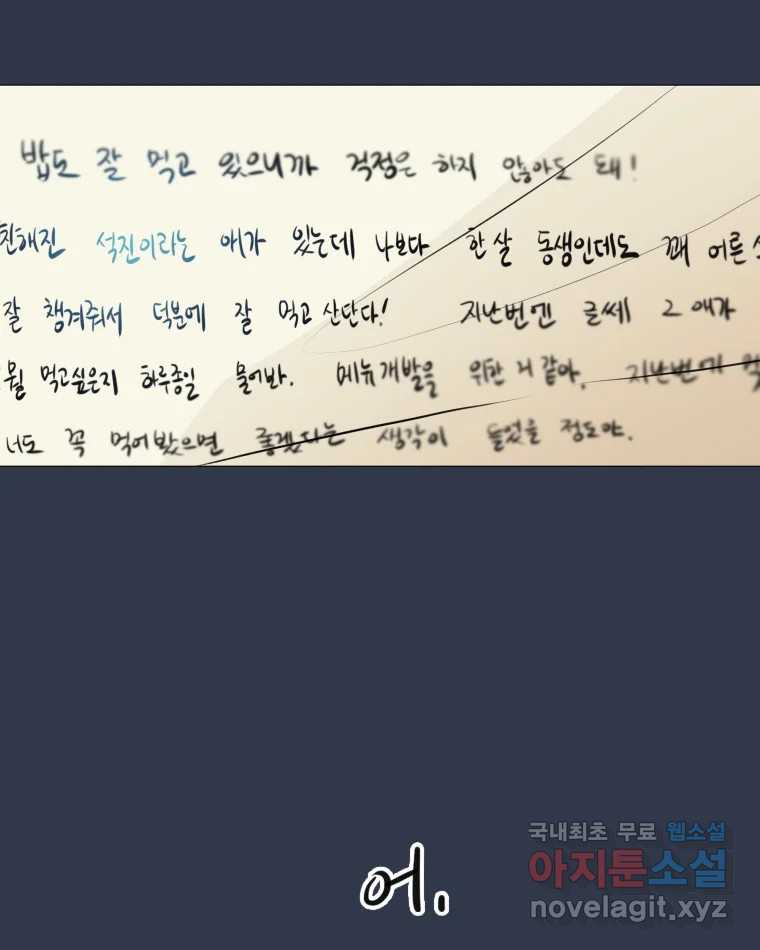 밥도 잘 먹고 있으니까 걱정은 하지 않아도 돼!
친해진 석진이라는 애가 있는데 나보다 한 살 동생인데도 꽤 어른스
잘 챙겨줘서 덕분에 잘 먹고 산단다! 지난번엔 글쎄 그 애가
뭘 먹고싶은지 하루종일 물어봐. 메뉴개발을 위한 거 같아. 지난번에
너도 꼭 먹어봤으면 좋겠다는 생각이 들었을 정도야.
어.
국내최초 무료 웹소설
아지툰소설
novelagit.xyz